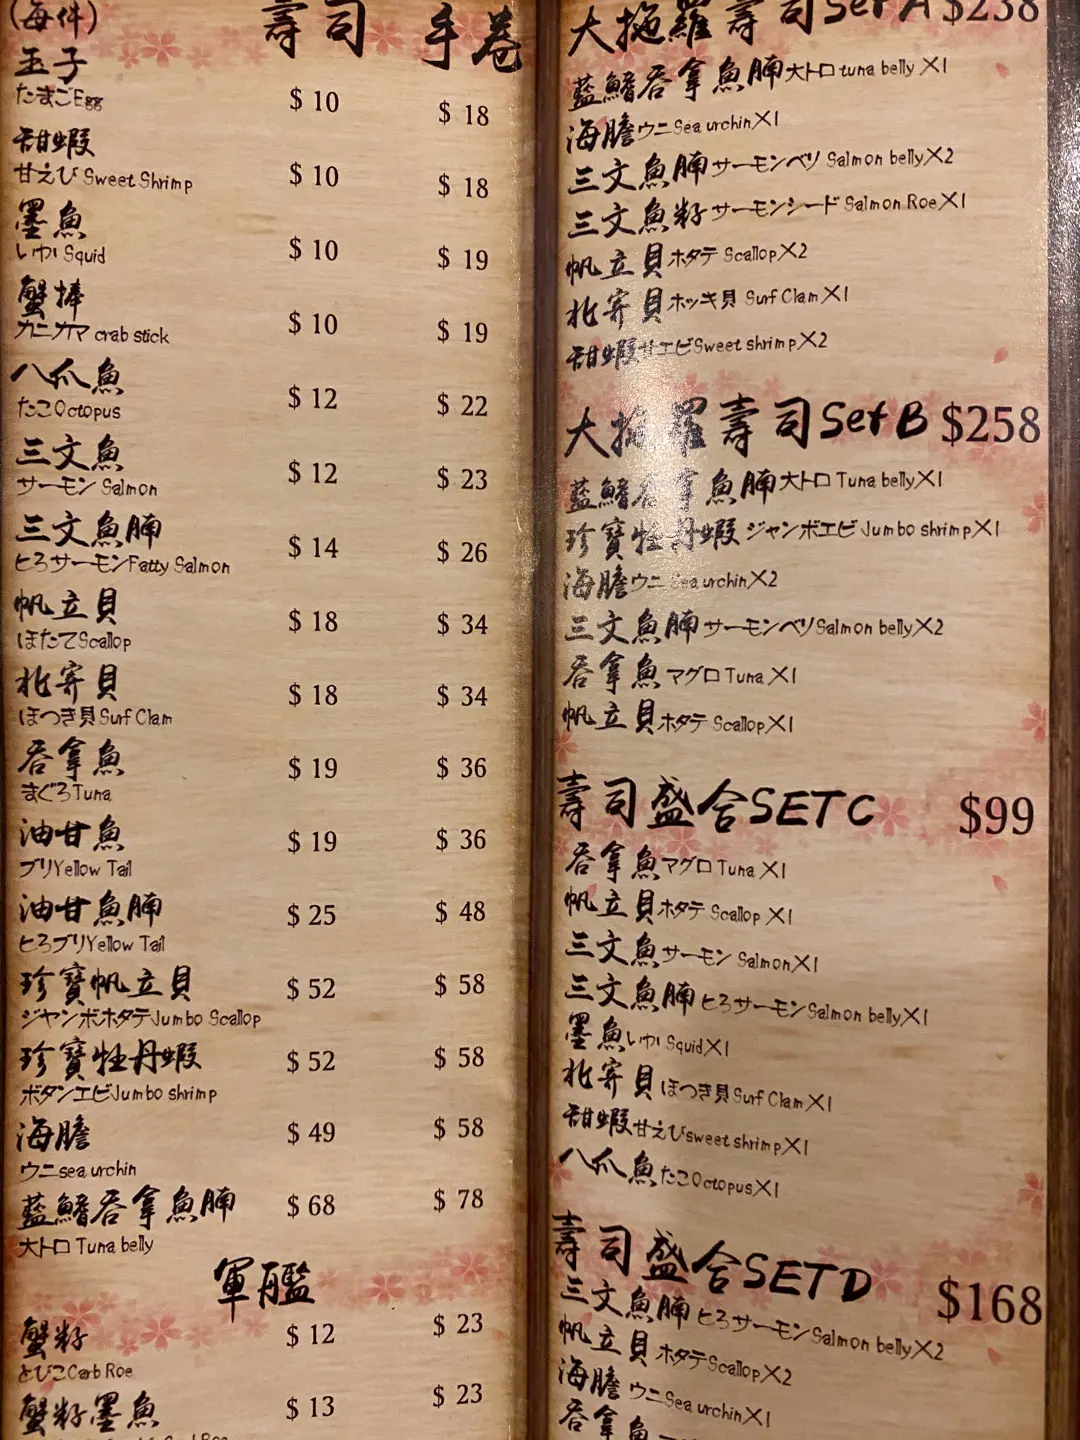 (每件) 壽司 手卷
玉子
たまごEgg $ 10 $ 18
甜蝦
甘えび Sweet Shrimp $ 10 $ 18
墨魚
いか Squid $ 10 $ 19
蟹棒
カニカマ crab stick $ 10 $ 19
八爪魚
たこOctopus $ 12 $ 22
三文魚
サーモン Salmon $ 12 $ 23
三文魚腩
とろサーモンFatty Salmon $ 14 $ 26
帆立貝
ほたてScallop $ 18 $ 34
北寄貝
ほつき貝Surf Clam $ 18 $ 34
吞拿魚
まぐろTuna $ 19 $ 36
油甘魚
ブリYellow Tail $ 19 $ 36
油甘魚腩
とろブリYellow Tail $ 25 $ 48
珍寶帆立貝
ジャンボホタテJumbo Scallop $ 52 $ 58
珍寶牡丹蝦
ボタンエビJumbo shrimp $ 52 $ 58
海膽
ウニsea urchin $ 49 $ 58
藍鰭吞拿魚腩
大トロ Tuna belly $ 68 $ 78
軍艦
蟹籽
とびこCarb Roe $ 12 $ 23
蟹籽墨魚 $ 13 $ 23
大拖羅壽司Set A $238
藍鰭吞拿魚腩大トロ tuna belly X1
海膽ウニSea urchinX1
三文魚腩サーモンベリ Salmon bellyX2
三文魚籽サーモンシード Salmon RoeX1
帆立貝ホタテ ScallopX2
北寄貝ホッキ貝 Surf ClamX1
甜蝦サエビSweet shrimpX2
大拖羅壽司Set B $258
藍鰭吞拿魚腩大トロ Tuna bellyX1
珍寶牡丹蝦 ジャンボエビ Jumbo shrimpX1
海膽ウニ Sea urchinX2
三文魚腩サーモンベリSalmon bellyX2
吞拿魚マグロTuna X1
帆立貝ホタテ ScallopX1
壽司盛合SET C $99
吞拿魚マグロTuna X1
帆立貝ホタテ Scallop X1
三文魚サーモン SalmonX1
三文魚腩とろサーモンSalmon bellyX1
墨魚いかSquidX1
北寄貝ほつき貝Surf ClamX1
甜蝦甘えびsweet shrimpX1
八爪魚たこOctopusX1
壽司盛合SET D $168
三文魚腩とろサーモンSalmon bellyX2
帆立貝ホタテScallopX2
海膽ウニSea urchinX1
吞拿魚